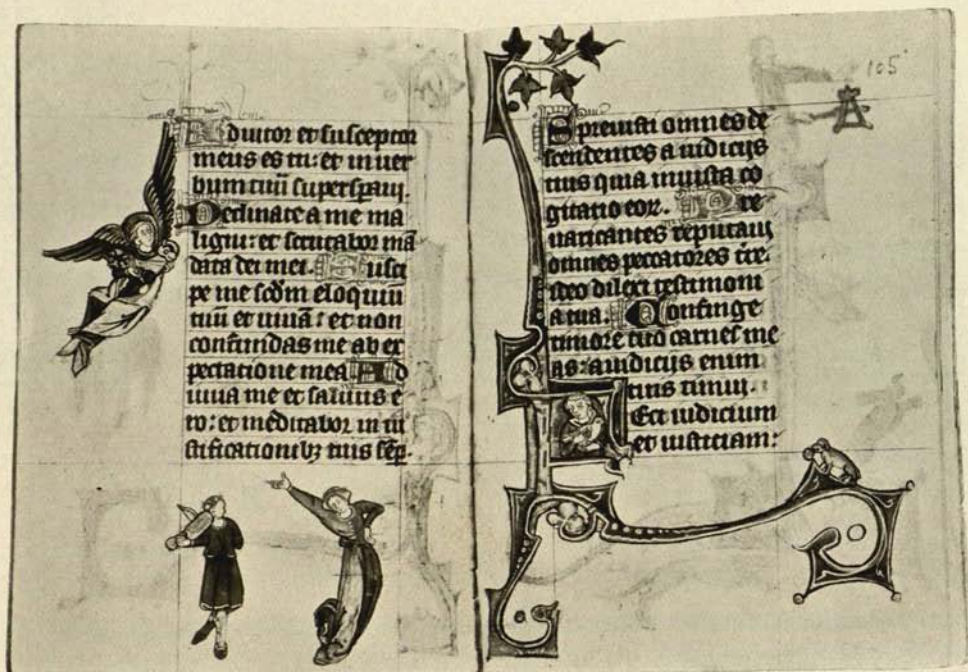 Adiutor et susceptor
meus es tu: et in uer
bum tuū supersperaui.
Declinate a me ma
ligni: et scrutabor mā
data dei mei. Susci
pe me scdm̄ eloquiū
tuū et uiuā: et non
confundas me ab ex
pectatione mea Ad
iuua me et saluus e
ro: et meditabor in iu
stificationibꝫ tuis sēp.
105
A
Spreuisti omnes de
scendentes a iudicijs
tuis quia iniusta co
gitatio eoꝝ. Pre
uaricantes reputaui
omnes peccatores t̄re:
ideo dilexi testimoni
a tua. Confinge
timore tuo carnes me
as: a iudicijs enim
tuis timui.
Feci iudicium
et iusticiam: